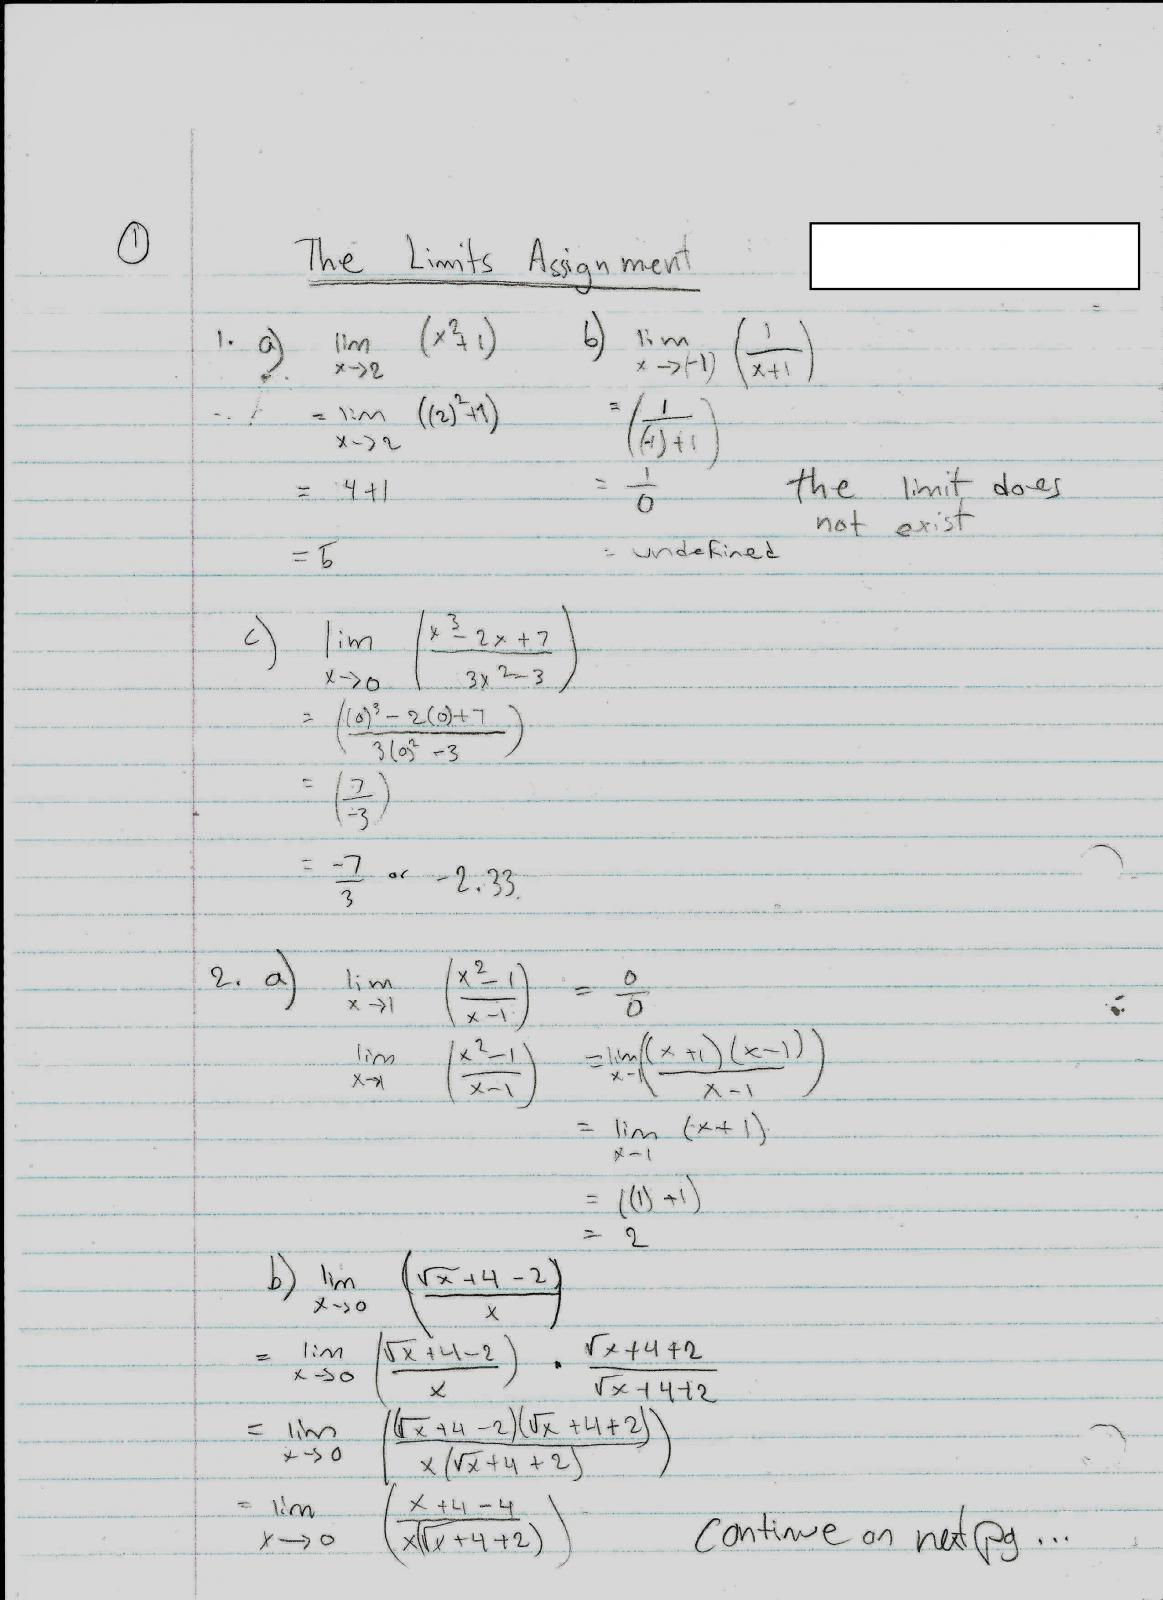 ①
The Limits Assignment
1. a) lim x→2 (x²+1)
= lim x→2 ((2)²+1)
= 4+1
= 5
b) lim x→(-1) (1/(x+1))
= (1/((-1)+1))
= 1/0
= undefined
the limit does
not exist
c) lim x→0 ((x³-2x+7)/(3x²-3))
= (((0)³-2(0)+7)/(3(0)²-3))
= (7/-3)
= -7/3 or -2.33
2. a) lim x→1 ((x²-1)/(x-1)) = 0/0
lim x→1 ((x²-1)/(x-1)) = lim x-1 (((x+1)(x-1))/(x-1))
= lim x-1 (x+1)
= ((1)+1)
= 2
b) lim x→0 ((√x+4-2)/x)
= lim x→0 ((√x+4-2)/x) · (√x+4+2)/(√x+4+2)
= lim x→0 (((√x+4-2)(√x+4+2))/(x(√x+4+2)))
= lim x→0 ((x+4-4)/(x(√x+4+2)))
Continue on next pg ...